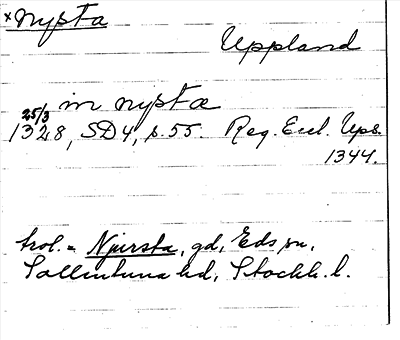 ×Nysta
Uppland
in nystæ
25/3
1328, SD4, s. 55. Reg. Eccl. Ups.
1344.
trol. = Njursta, gd, Eds sn,
Sollentuna hd, Stockh. l.